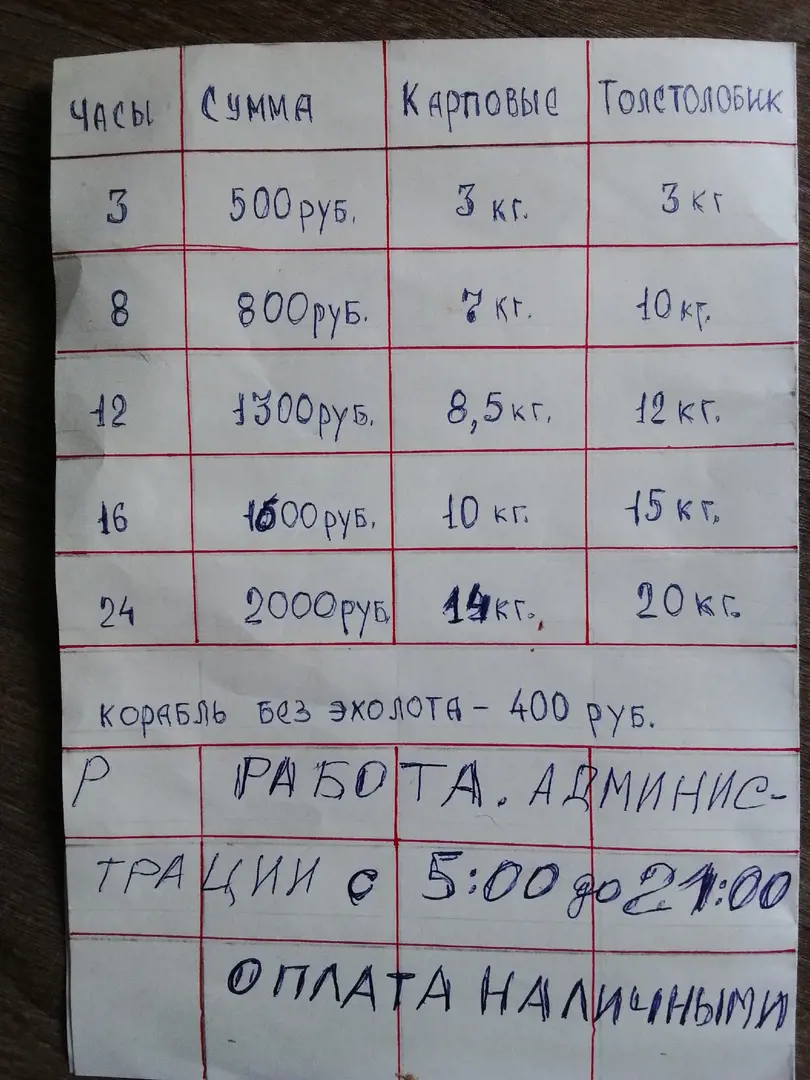 ЧАСЫ СУММА КАРПОВЫЕ ТОЛСТОЛОБИК
3 500 руб. 3 кг. 3 кг
8 800 руб. 7 кг. 10 кг.
12 1300 руб. 8,5 кг. 12 кг.
16 1600 руб. 10 кг. 15 кг.
24 2000 руб. 14 кг. 20 кг.
КОРАБЛЬ БЕЗ ЭХОЛОТА - 400 руб.
Р РАБОТА. АДМИНИС-
ТРАЦИИ с 5:00 до 21:00
ОПЛАТА НАЛИЧНЫМИ